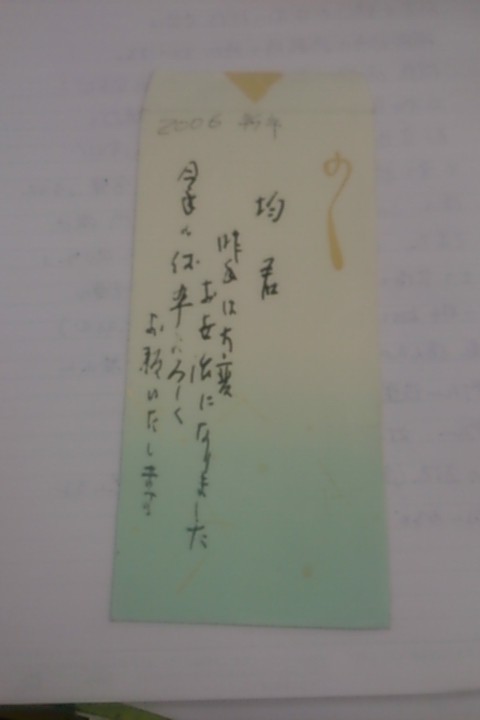 2006 新年
のし
均君
昨年は大変
お世話になりました
今年も何卒よろしく
お願いいたします